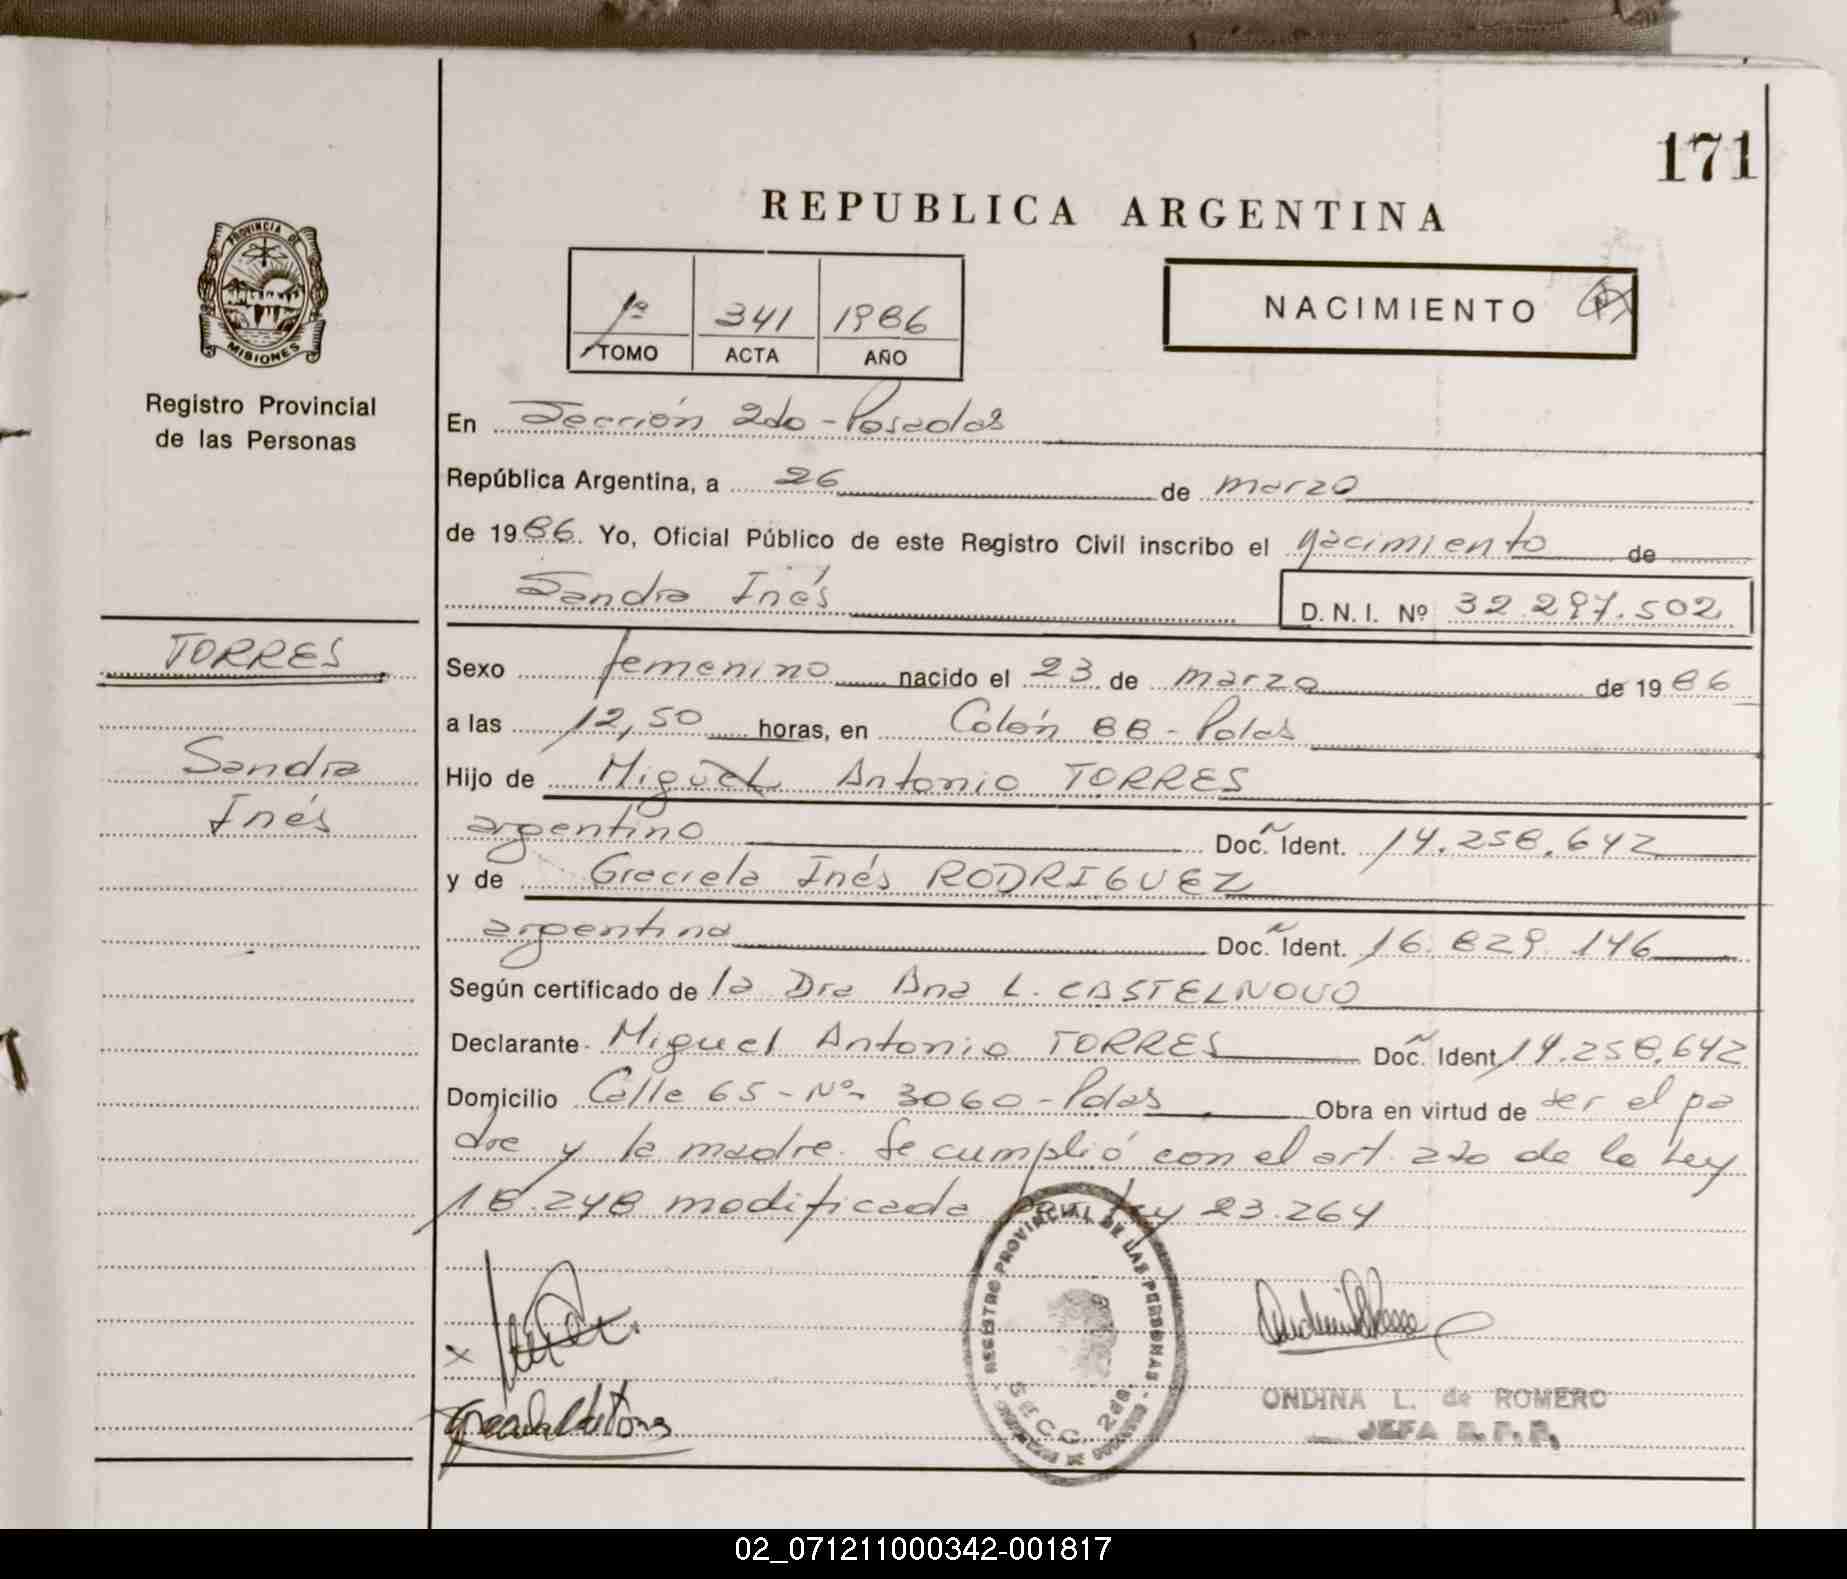 171
REPUBLICA ARGENTINA
PROVINCIA DE
MISIONES
Registro Provincial
de las Personas
1º 341 1986
TOMO ACTA AÑO
NACIMIENTO
En Sección 2do - Posadas
República Argentina, a 26 de marzo
de 1986. Yo, Oficial Público de este Registro Civil inscribo el nacimiento de
Sandra Inés D. N. I. Nº 32.297.502
TORRES
Sandra
Inés
Sexo femenino nacido el 23 de marzo de 1986
a las 12,50 horas, en Colón 88 - Pdas
Hijo de Miguel Antonio TORRES
argentino Doc. Ident. 14.258.642
y de Graciela Inés RODRIGUEZ
argentina Doc. Ident. 16.829.146
Según certificado de la Dra Ana L. CASTELNOVO
Declarante Miguel Antonio TORRES Doc. Ident. 14.258.642
Domicilio Calle 65 - Nº 3060 - Pdas Obra en virtud de ser el pa
dre y la madre. Se cumplió con el art. 2do de la Ley
18.248 modificada por Ley 23.264
REGISTRO PROVINCIAL DE LAS PERSONAS
SECC. 2da
ONDINA L. de ROMERO
JEFA R.P.P.
02_071211000342-001817